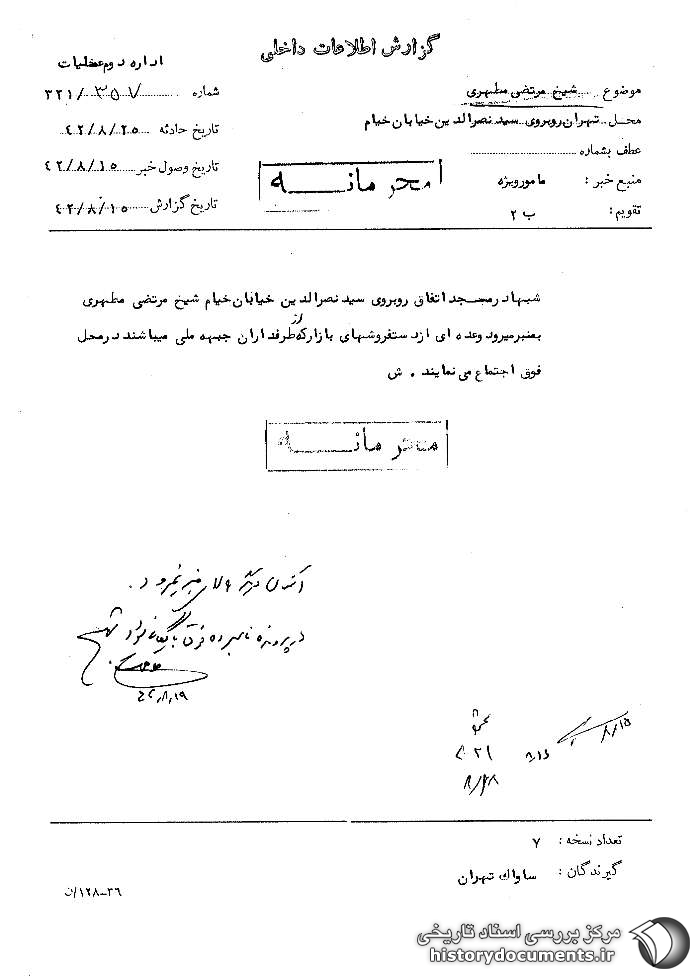 گزارش اطلاعات داخلی
اداره دوم عملیات
موضوع شیخ مرتضی مطهری
شماره ۳۲۱/۳۵۷
محل تهران روبروی سید نصرالدین خیابان خیام
تاریخ حادثه ۴۲/۸/۲۵
عطف بشماره
تاریخ وصول خبر ۴۲/۸/۱۵
منبع خبر : مامور ویژه
محرمانه
تاریخ گزارش ۴۲/۸/۱۵
تقویم : ب ۲
شبها در مسجد اتفاق روبروی سید نصرالدین خیابان خیام شیخ مرتضی مطهری
بمنبر میرود و عده ای از دستفروشهای بازار که از طرفداران جبهه ملی میباشند در محل
فوق اجتماع می نمایند . ش
محرمانه
در پرونده نامبرده فوق بایگانی شود
۴۲،۸،۱۹
۸/۱۵
تعداد نسخه : ۷
گیرندگان : ساواک تهران
۱۲۸-۳۶/ن
مرکز بررسی اسناد تاریخی
historydocuments.ir